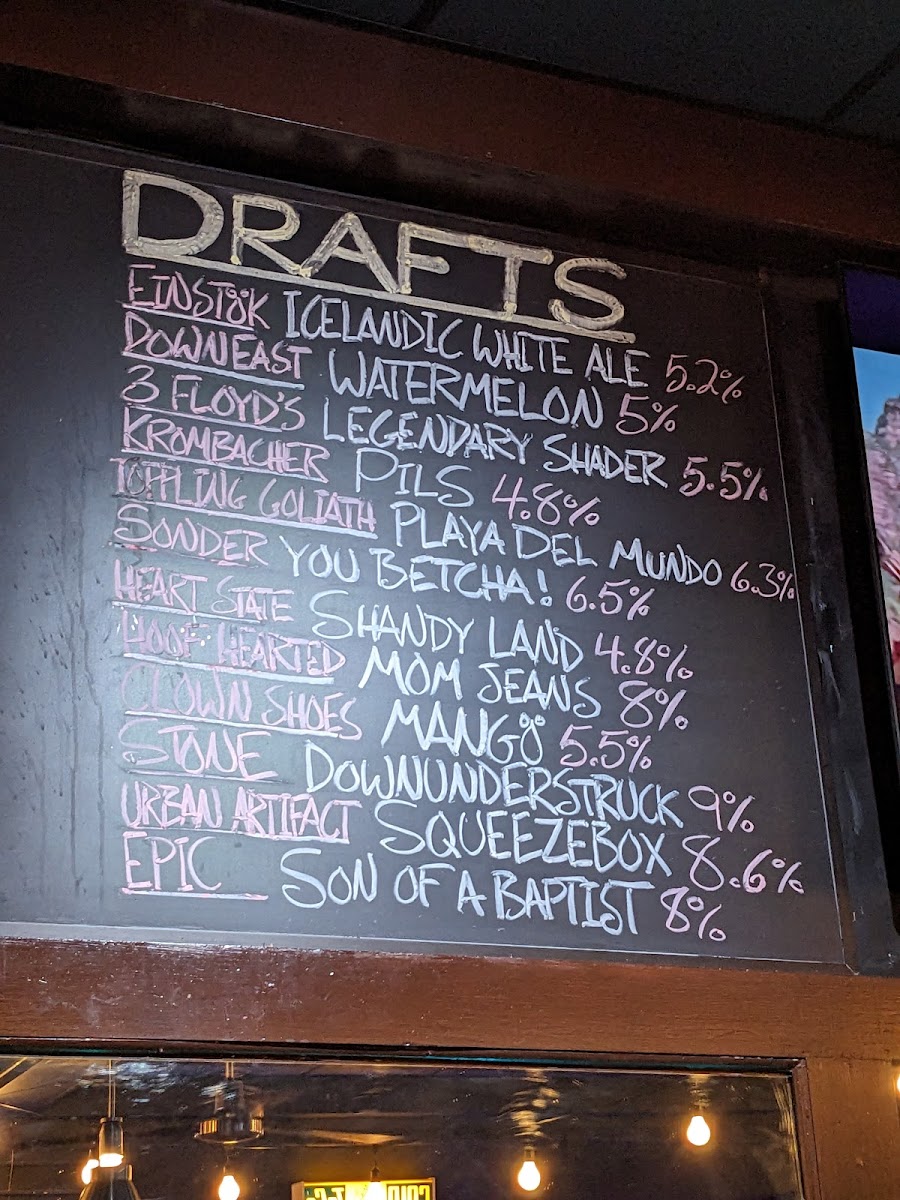 DRAFTS
EINSTÖK ICELANDIC WHITE ALE 5.2%
DOWNEAST WATERMELON 5%
3 FLOYD'S LEGENDARY SHADER 5.5%
KROMBACHER PILS 4.8%
TOPPLING GOLIATH PLAYA DEL MUNDO 6.3%
SONDER YOU BETCHA! 6.5%
HEART STATE SHANDY LAND 4.8%
HOOF HEARTED MOM JEANS 8%
CLOWN SHOES MANGÖ 5.5%
STONE DOWNUNDERSTRUCK 9%
URBAN ARTIFACT SQUEEZEBOX 8.6%
EPIC SON OF A BAPTIST 8%